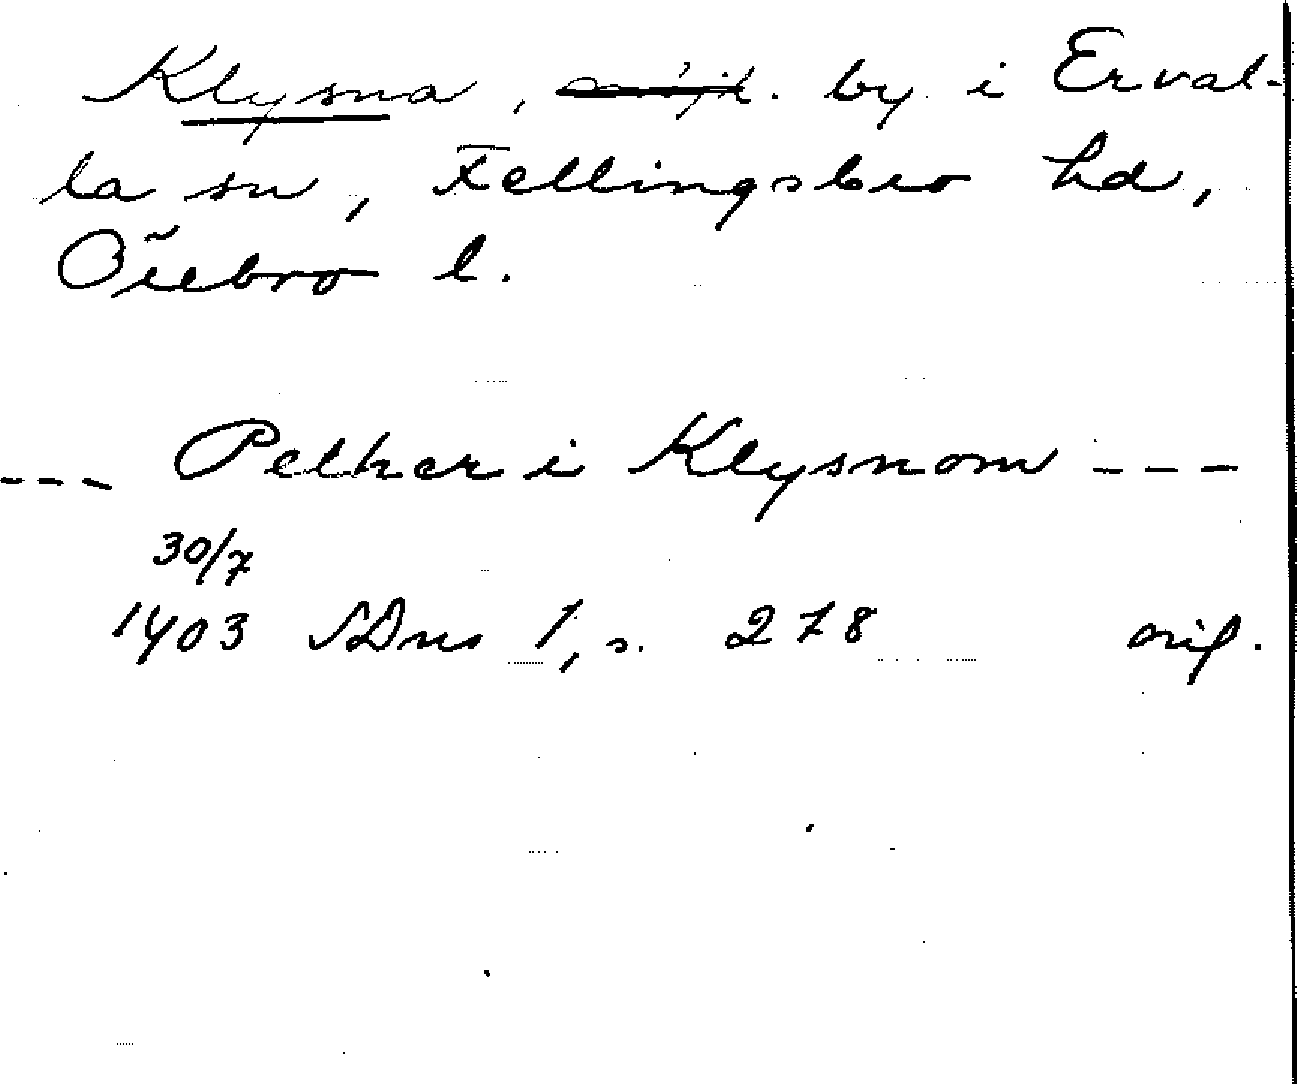 Klysna, by i Erval-
la sn, Fellingsbro hd,
Örebro l.
--- Pether i Klysnom ---
30/7
1403 SDns 1, s. 278 orig.